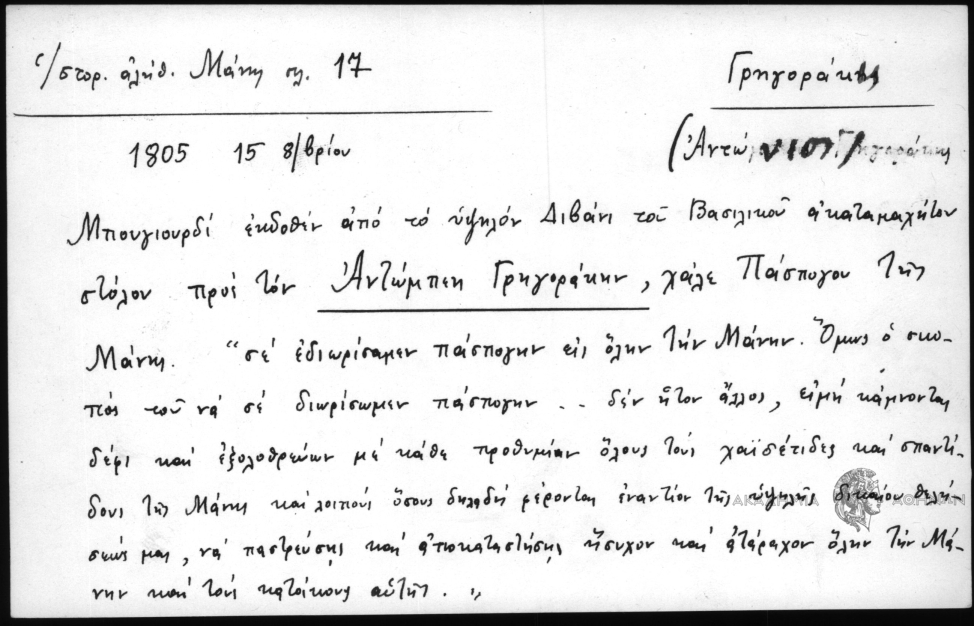 Ἱστορ. ἀλήθ. Μάνης σελ. 17
Γρηγοράκης
1805 15 8/βρίου
(Ἀντώνιος Γρηγοράκης
Μπουγιουρδί ἐκδοθέν ἀπό τό ὑψηλόν Διβάνι τοῦ Βασιλικοῦ ἀκαταμαχήτου
στόλου πρός τόν Ἀντώμπεη Γρηγοράκην, χάλε Πάσπογου τῆς
Μάνης. "σέ ἐδιωρίσαμεν πάσπογην εἰς ὅλην τήν Μάνην. Ὅμως ὁ σκο-
πός τοῦ νά σέ διωρίσωμεν πάσπογην .. δέν ἦτον ἄλλος, εἰμή κάμνοντας
δέφι καί ἐξολοθρεύων μέ κάθε προθυμίαν ὅλους τούς χαϊσέτιδες καί σπαντί-
δους τῆς Μάνης καί λοιπούς ὅσους δηλαδή φέρονται ἐναντίον τῆς ὑψηλῆς δικαίου θελή-
σεώς μας, νά παστρεύσῃς καί ἀποκαταστήσῃς ἥσυχον καί ἀτάραχον ὅλην τήν Μά-
νην καί τούς κατοίκους αὐτῆς. "
ΑΚΑΔΗΜΙΑ ΑΘΗΝΩΝ